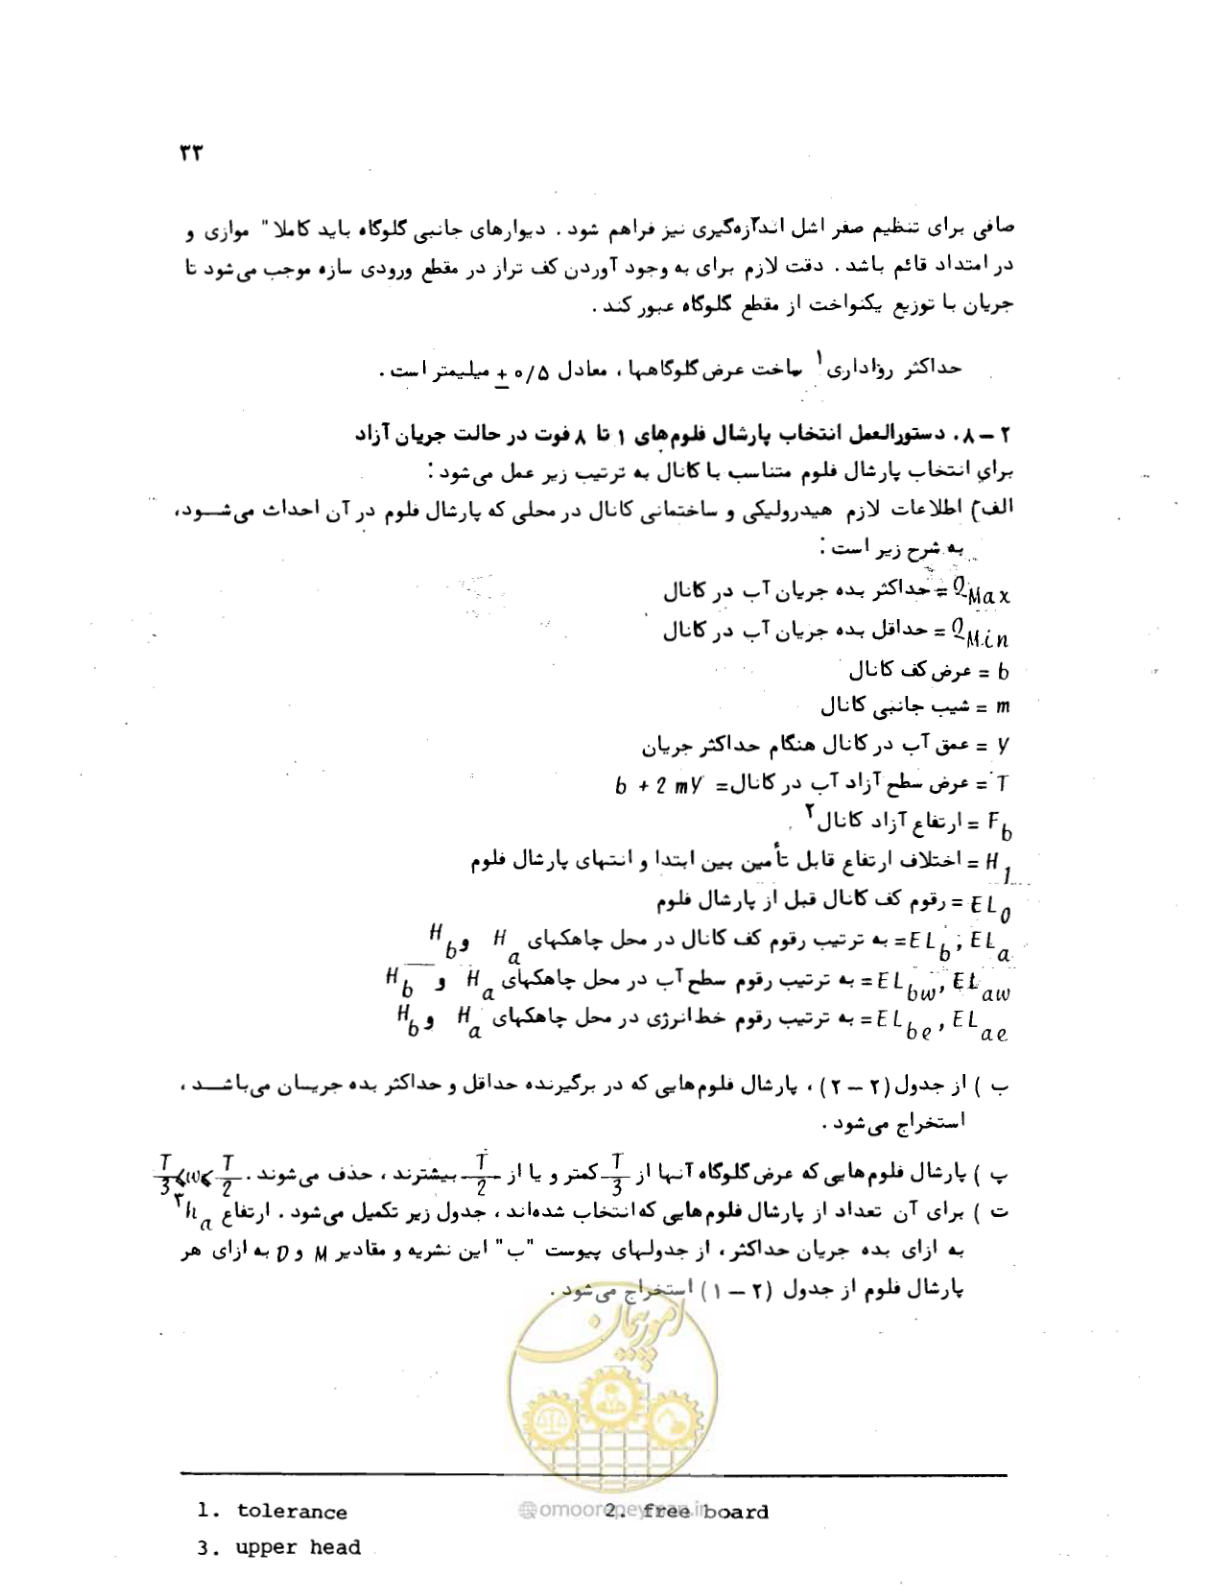 ۳۳
صافی برای تنظیم صفر اشل اندازه‌گیری نیز فراهم شود . دیوارهای جانبی گلوگاه باید کاملا" موازی و
در امتداد قائم باشد . دقت لازم برای به وجود آوردن کف تراز در مقطع ورودی سازه موجب می‌شود تا
جریان با توزیع یکنواخت از مقطع گلوگاه عبور کند .
حداکثر رواداری۱ ساخت عرض گلوگاهها ، معادل ۰/۵ ± میلیمتر است .
۲ – ۸. دستورالعمل انتخاب پارشال فلوم‌های ۱ تا ۸ فوت در حالت جریان آزاد
برای انتخاب پارشال فلوم متناسب با کانال به ترتیب زیر عمل می‌شود :
الف) اطلاعات لازم هیدرولیکی و ساختمانی کانال در محلی که پارشال فلوم در آن احداث می‌شود،
به شرح زیر است :
Q Max = حداکثر بده جریان آب در کانال
Q Min = حداقل بده جریان آب در کانال
b = عرض کف کانال
m = شیب جانبی کانال
y = عمق آب در کانال هنگام حداکثر جریان
T = عرض سطح آزاد آب در کانال = b + 2 my
F b = ارتفاع آزاد کانال۲
H 1 = اختلاف ارتفاع قابل تأمین بین ابتدا و انتهای پارشال فلوم
EL 0 = رقوم کف کانال قبل از پارشال فلوم
EL a ; EL b = به ترتیب رقوم کف کانال در محل چاهکهای H a و H b
EL aw , EL bw = به ترتیب رقوم سطح آب در محل چاهکهای H a و H b
EL ae , EL be = به ترتیب رقوم خط انرژی در محل چاهکهای H a و H b
ب ) از جدول (۲ – ۲) ، پارشال فلوم‌هایی که در برگیرنده حداقل و حداکثر بده جریان می‌باشد ،
استخراج می‌شود .
پ ) پارشال فلوم‌هایی که عرض گلوگاه آنها از T/3 کمتر و یا از T/2 بیشترند ، حذف می‌شوند . T/3 ≤ w ≤ T/2
ت ) برای آن تعداد از پارشال فلوم‌هایی که انتخاب شده‌اند ، جدول زیر تکمیل می‌شود . ارتفاع h a ۳
به ازای بده جریان حداکثر ، از جدولهای پیوست "ب" این نشریه و مقادیر M و D به ازای هر
پارشال فلوم از جدول (۲ – ۱) استخراج می‌شود .
امور پیمان
1. tolerance 2. free board
@omoorepeyman.ir
3. upper head